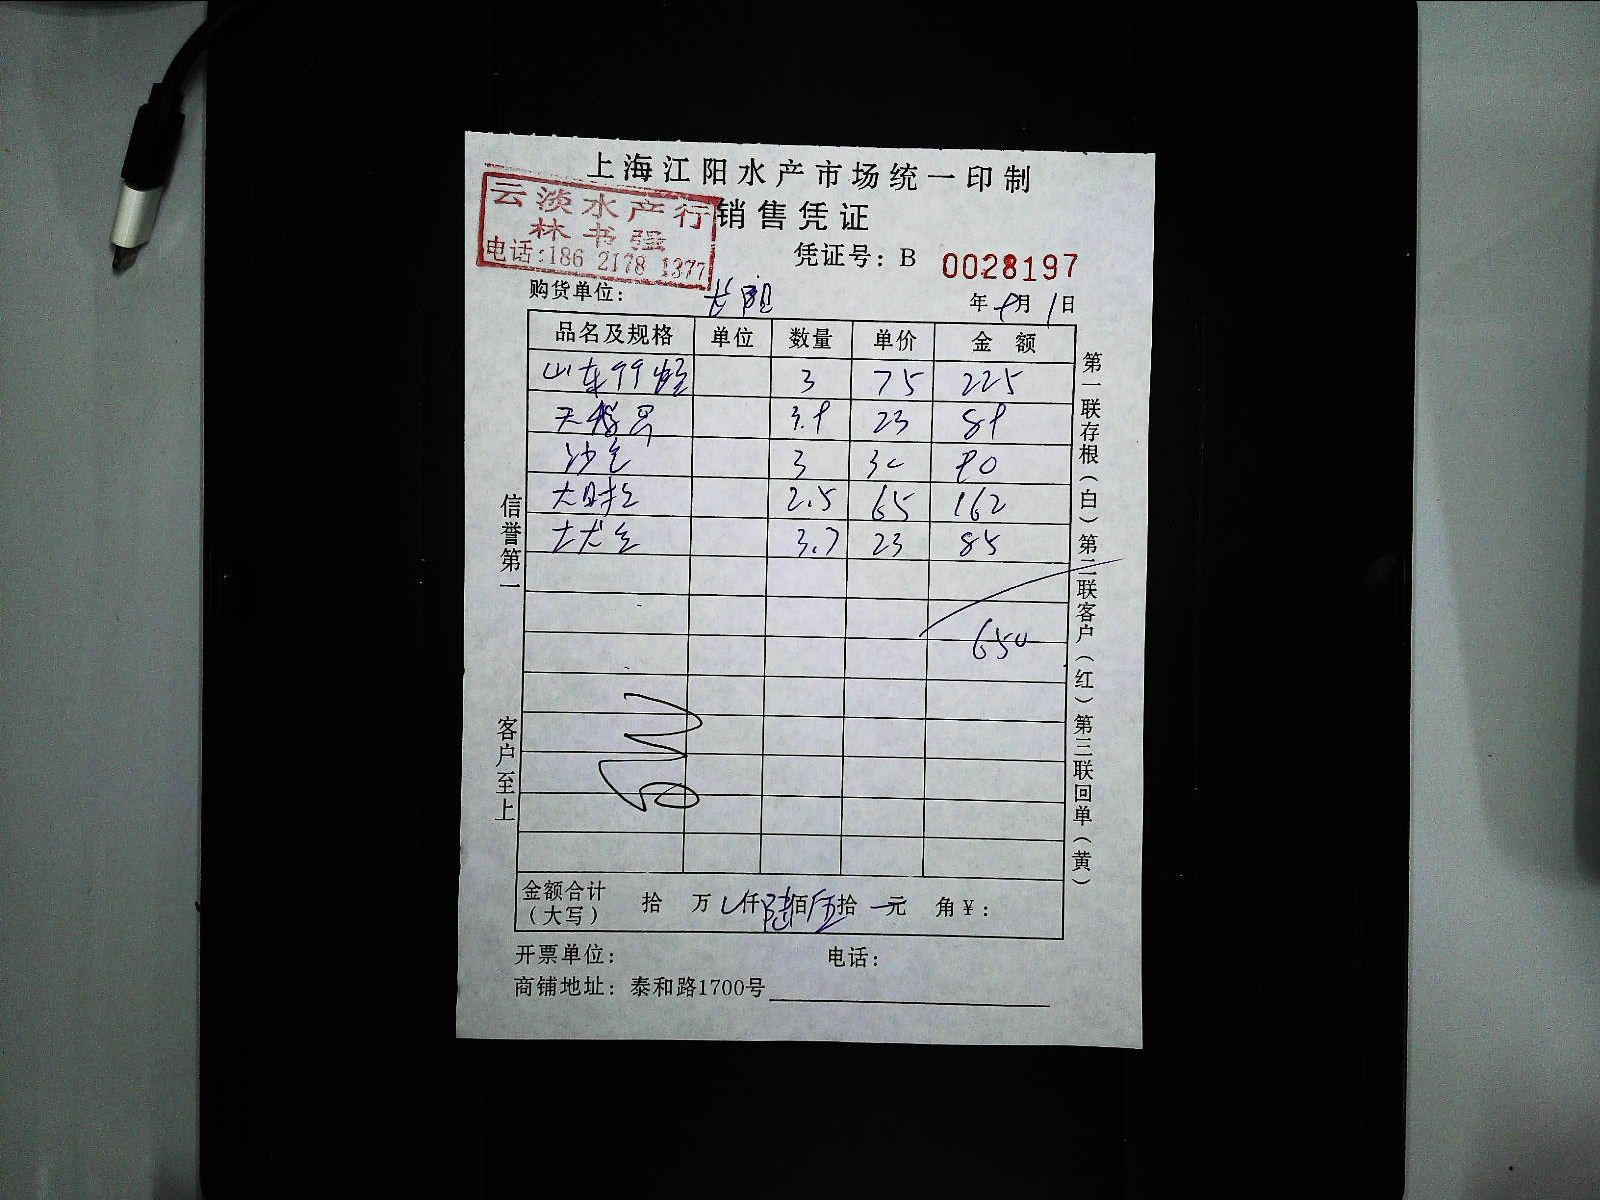 上海江阳水产市场统一印制
云淡水产行
林书强
电话:186 2178 1377
销售凭证
凭证号：B 0028197
购货单位：
年9月1日
品名及规格 单位 数量 单价 金额
山东99 3 75 225
3.9 23 89
沙 3 30 90
大 2.5 65 162
3.7 23 85
650
信誉第一
客户至上
第一联存根（白）第二联客户（红）第三联回单（黄）
金额合计（大写） 拾 万 仟陆佰伍拾 元 角¥：
开票单位： 电话：
商铺地址：泰和路1700号